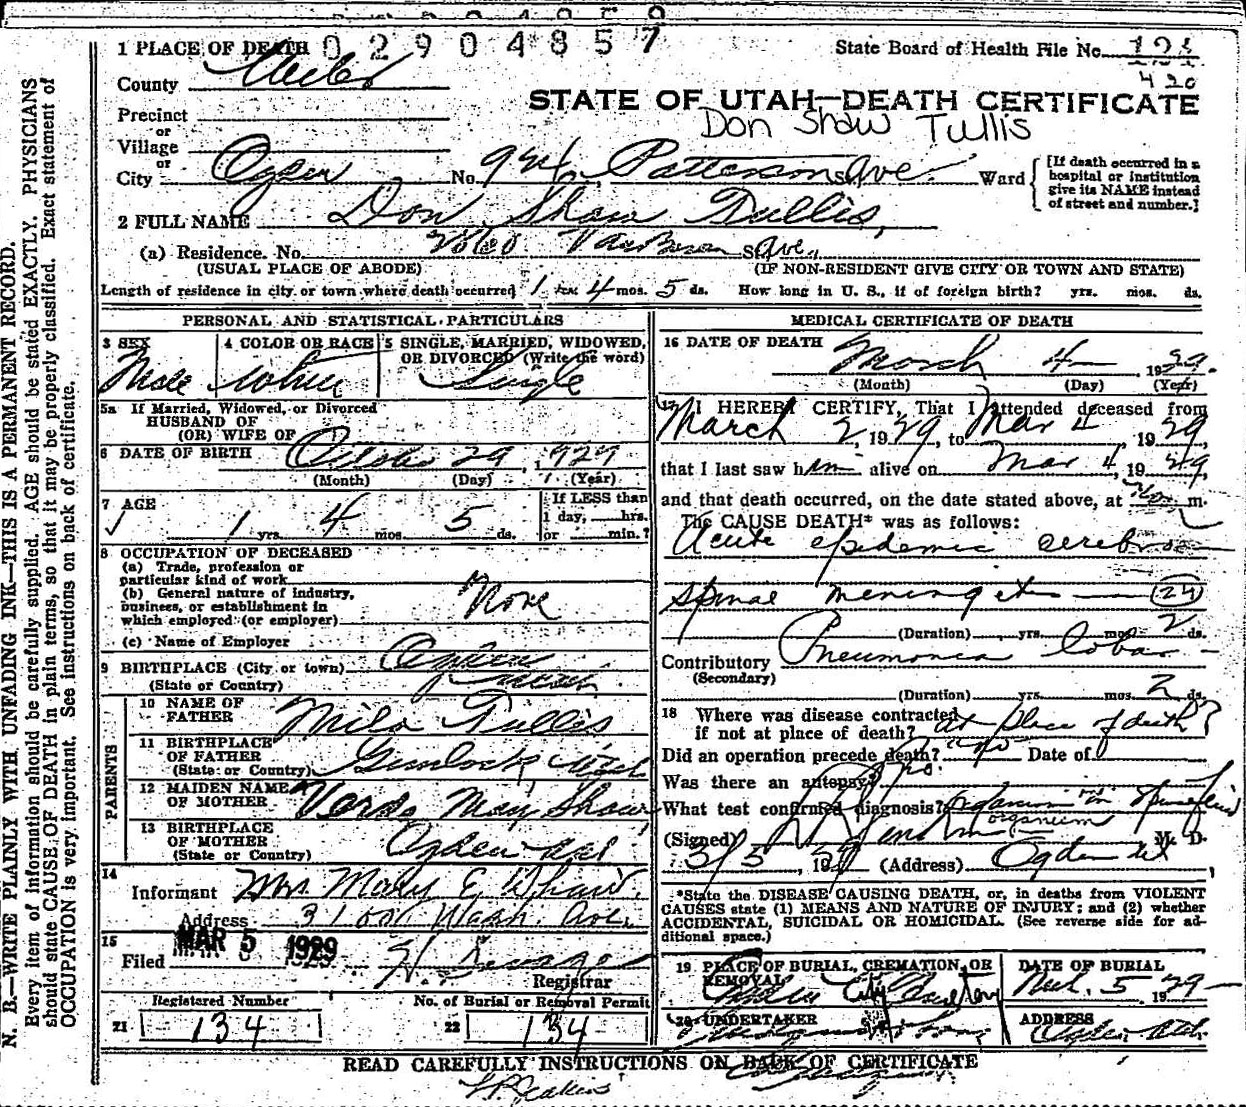 02904857
1 PLACE OF DEATH
State Board of Health File No.
420
County Weber
STATE OF UTAH—DEATH CERTIFICATE
Don Shaw Tullis
Precinct
or
Village
or
City Ogden No. Patterson St. Ave. Ward
[If death occurred in a
hospital or institution
give its NAME instead
of street and number.]
2 FULL NAME Don Shaw Tullis,
(a) Residence. No. Van Buren St. Ave.
(USUAL PLACE OF ABODE) (IF NON-RESIDENT GIVE CITY OR TOWN AND STATE)
Length of residence in city or town where death occurred 1 yrs 4 mos. 5 ds. How long in U. S., if of foreign birth? yrs. mos. ds.
PERSONAL AND STATISTICAL PARTICULARS
3 SEX
Male
4 COLOR OR RACE
White
5 SINGLE, MARRIED, WIDOWED,
OR DIVORCED (Write the word)
Single
5a If Married, Widowed, or Divorced
HUSBAND OF
(OR) WIFE OF
6 DATE OF BIRTH October 29, 1927
(Month) (Day) (Year)
7 AGE
1 yrs. 4 mos. 5 ds.
If LESS than
1 day, hrs.
or min.?
8 OCCUPATION OF DECEASED
(a) Trade, profession or
particular kind of work
(b) General nature of industry,
business, or establishment in
which employed (or employer)
None
(c) Name of Employer
9 BIRTHPLACE (City or town) Ogden
(State or Country) Utah
PARENTS
10 NAME OF
FATHER Milo Tullis
11 BIRTHPLACE
OF FATHER
(State or Country) Gunlock, Utah
12 MAIDEN NAME
OF MOTHER Verda May Shaw
13 BIRTHPLACE
OF MOTHER
(State or Country) Ogden Utah
14
Informant Mrs. Mary E. Shaw
Address Wash. Ave.
15
Filed MAR 5 1929
Registrar
Registered Number
21 134
No. of Burial or Removal Permit
22 134
MEDICAL CERTIFICATE OF DEATH
16 DATE OF DEATH March 4 1929.
(Month) (Day) (Year)
17 I HEREBY CERTIFY, That I attended deceased from
March 2, 1929, to Mar 4, 1929,
that I last saw him alive on Mar 4, 1929,
and that death occurred, on the date stated above, at m.
The CAUSE DEATH* was as follows:
Acute epidemic cerebro
spinal meningitis (24)
(Duration) yrs. mos. 2 ds.
Contributory Pneumonia lobar
(Secondary)
(Duration) yrs. mos. 2 ds.
18 Where was disease contracted
if not at place of death? at place of death?
Did an operation precede death? no Date of
Was there an autopsy? no.
What test confirmed diagnosis? organism in spinal fluid
organism
(Signed) M. D.
3/5, 1929 (Address) Ogden Utah
*State the DISEASE CAUSING DEATH, or, in deaths from VIOLENT
CAUSES state (1) MEANS AND NATURE OF INJURY; and (2) whether
ACCIDENTAL, SUICIDAL OR HOMICIDAL. (See reverse side for ad-
ditional space.)
19 PLACE OF BURIAL, CREMATION, OR
REMOVAL
City
DATE OF BURIAL
Mch. 5 1929
20 UNDERTAKER
ADDRESS
Ogden Utah
READ CAREFULLY INSTRUCTIONS ON BACK OF CERTIFICATE
N. B.—WRITE PLAINLY WITH UNFADING INK—THIS IS A PERMANENT RECORD.
Every item of information should be carefully supplied. AGE should be stated EXACTLY. PHYSICIANS
should state CAUSE OF DEATH in plain terms, so that it may be properly classified. Exact statement of
OCCUPATION is very important. See instructions on back of certificate.